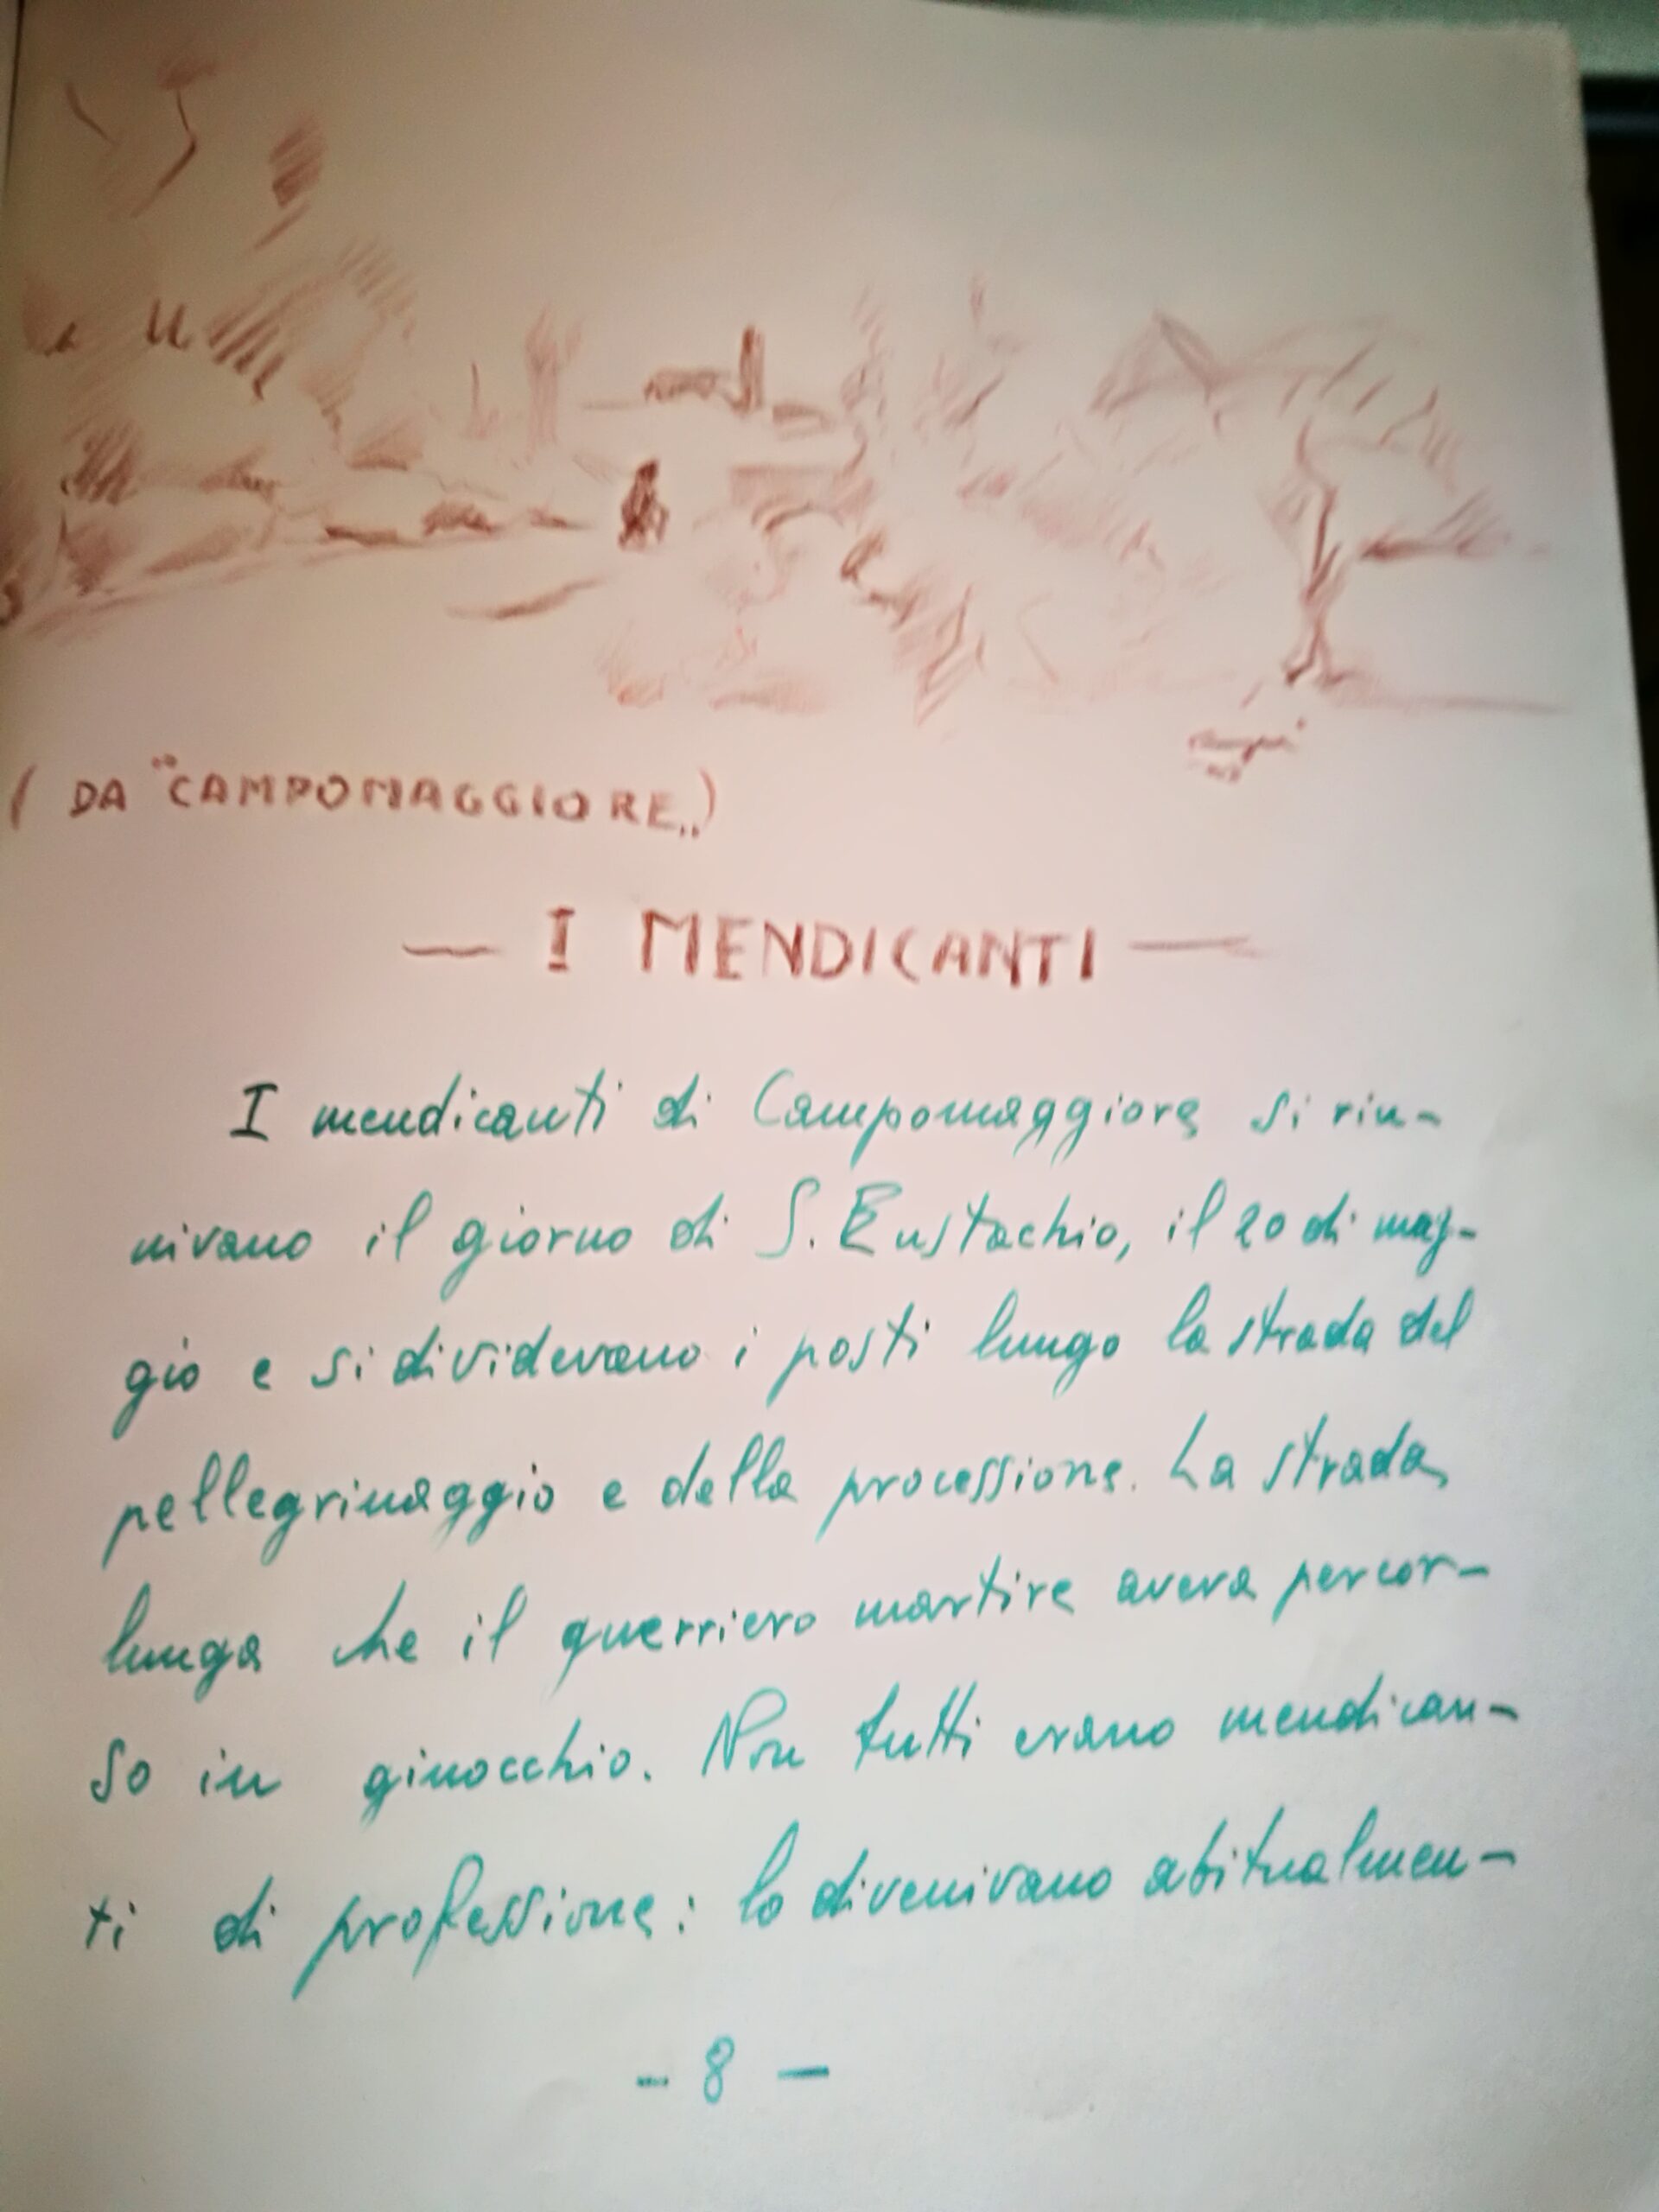 ( DA "CAMPOMAGGIORE„)
— I MENDICANTI —
I mendicanti di Campomaggiore si riu-
nivano il giorno di S. Eustachio, il 20 di mag-
gio e si dividevano i posti lungo la strada del
pellegrinaggio e della processione. La strada
lunga che il guerriero martire aveva percor-
so in ginocchio. Non tutti erano mendican-
ti di professione: lo divenivano abitualmen-
- 8 -